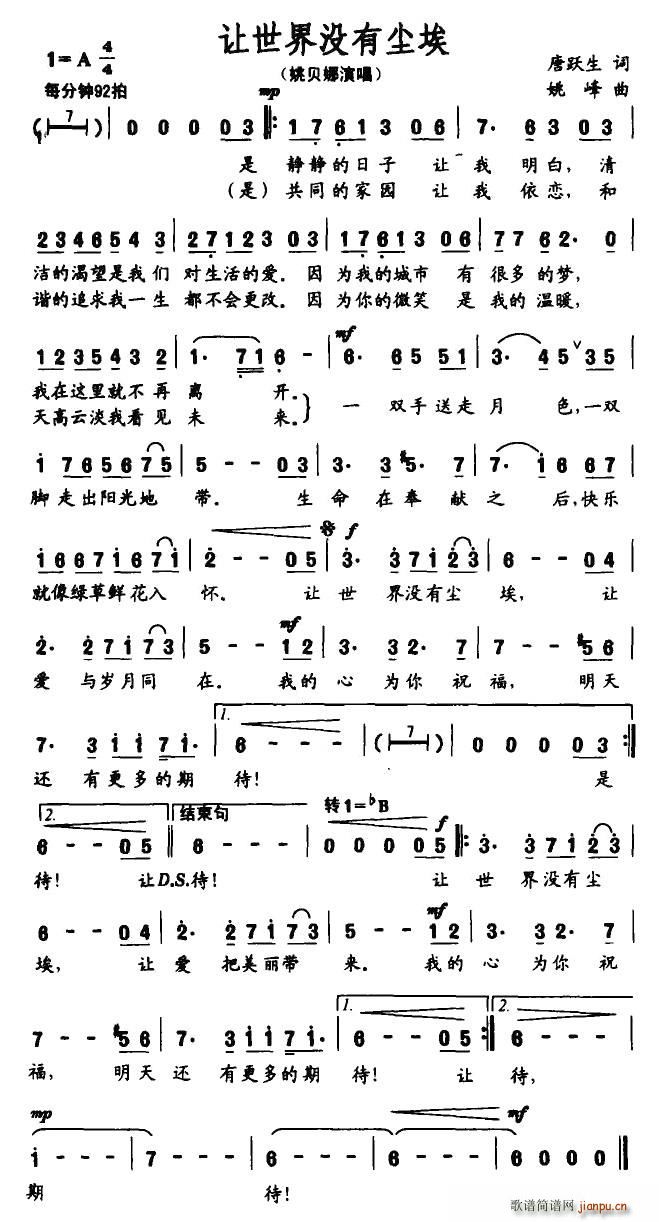 让世界没有尘埃
1=A 4/4
(姚贝娜演唱)
唐跃生 词
每分钟92拍
姚峰 曲
mp
(7) 0 0 0 03 1761 3 06 7· 63 03
是 静静的日子 让 我 明白, 清
(是)共同的家园 让 我 依恋, 和
234654 3 27123 03 17613 06 77 62· 0
洁的渴望是我们 对生活的爱。因 为我的城市 有 很多的梦,
谐的追求我一生 都不会更改。因 为你的微笑 是 我的温暖,
mf
123543 2 1· 716 - 6· 65 51 3· 45 35
我在这里就不再 离 开。
天高云淡我看见 未 来。
一 双手送走月 色,一双
1 7656 75 5 - - 03 3· 3 #5· 7 7· 1 6 67
脚走出阳光地 带。 生 命 在奉 献之 后,快乐
f
1667 16 71 2 - - 05 3· 371 23 6 - - 04
就像绿草鲜花入 怀。 让 世 界没有尘 埃, 让
mf
2· 271 73 5 - - 12 3· 3 2· 7 7 - - #56
爱 与岁月同 在。 我的 心 为你 祝 福, 明天
1.
7· 3 11 71· 6 - - - (7) 0 0 0 03
还 有更多的期 待! 是
2. 结束句 转1=♭B
f
6 - - 05 6 - - - 0 0 0 0 05 3· 371 23
待! 让D.S.待! 让 世 界没有尘
mf
6 - - 04 2· 271 73 5 - - 12 3· 3 2· 7
埃, 让 爱 把美丽带 来。 我的 心 为你 祝
1. 2.
7 - - #56 7· 3 11 71 6 - - 05 6 - - -
福, 明天 还 有更多的期 待! 让 待,
mp mf
1 - - - 7 - - - 6 - - - 6 - - - 6 0 0 0
期 待!
歌谱简谱网
jianpu.cn